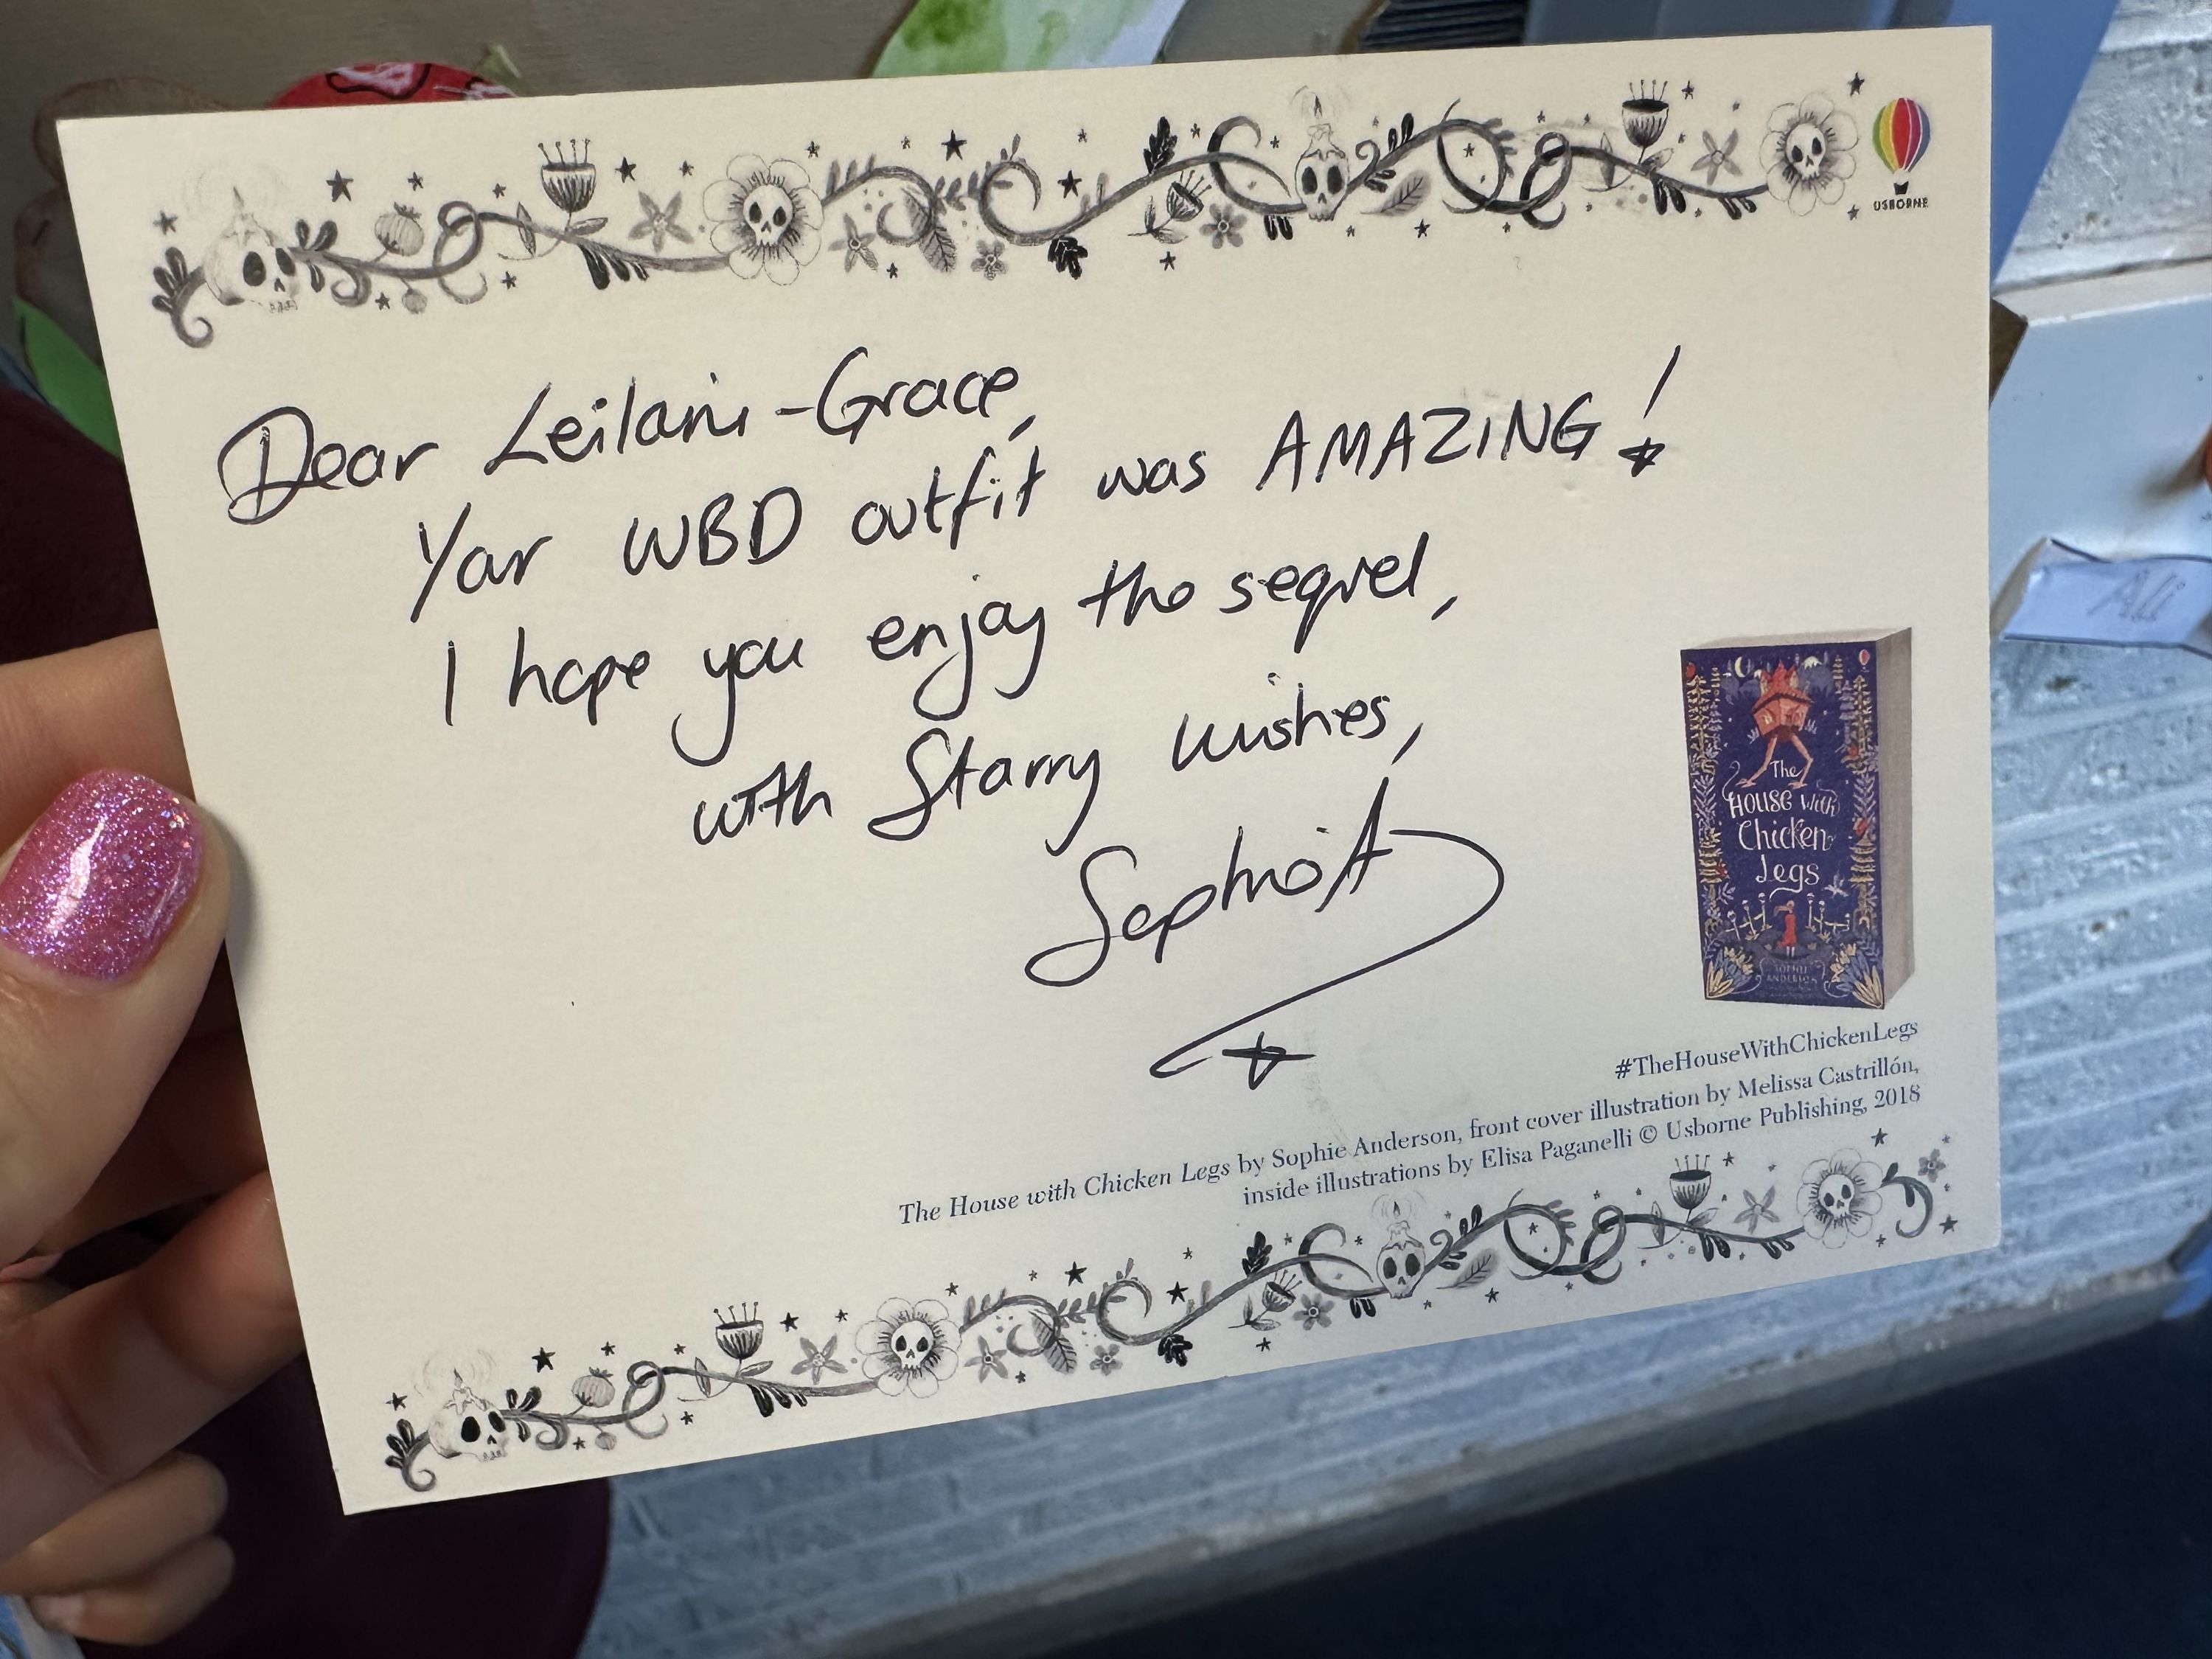 USBORNE
Dear Leilani-Grace,
Your WBD outfit was AMAZING!
I hope you enjoy the sequel,
with Starry wishes,
Sophie A
The
HOUSE with
Chicken
Legs
SOPHIE
ANDERSON
#TheHouseWithChickenLegs
The House with Chicken Legs by Sophie Anderson, front cover illustration by Melissa Castrillón,
inside illustrations by Elisa Paganelli © Usborne Publishing, 2018
Ali